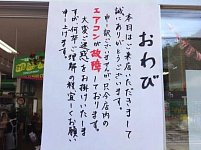 おわび
本日はご来店いただきまして
誠にありがとうございます。
申し訳ございませんが、只今店内の
エアコンが故障しております。
大変ご迷惑をお掛けいたしま
すが、何卒ご理解の程宜しくお願い
申し上げます。